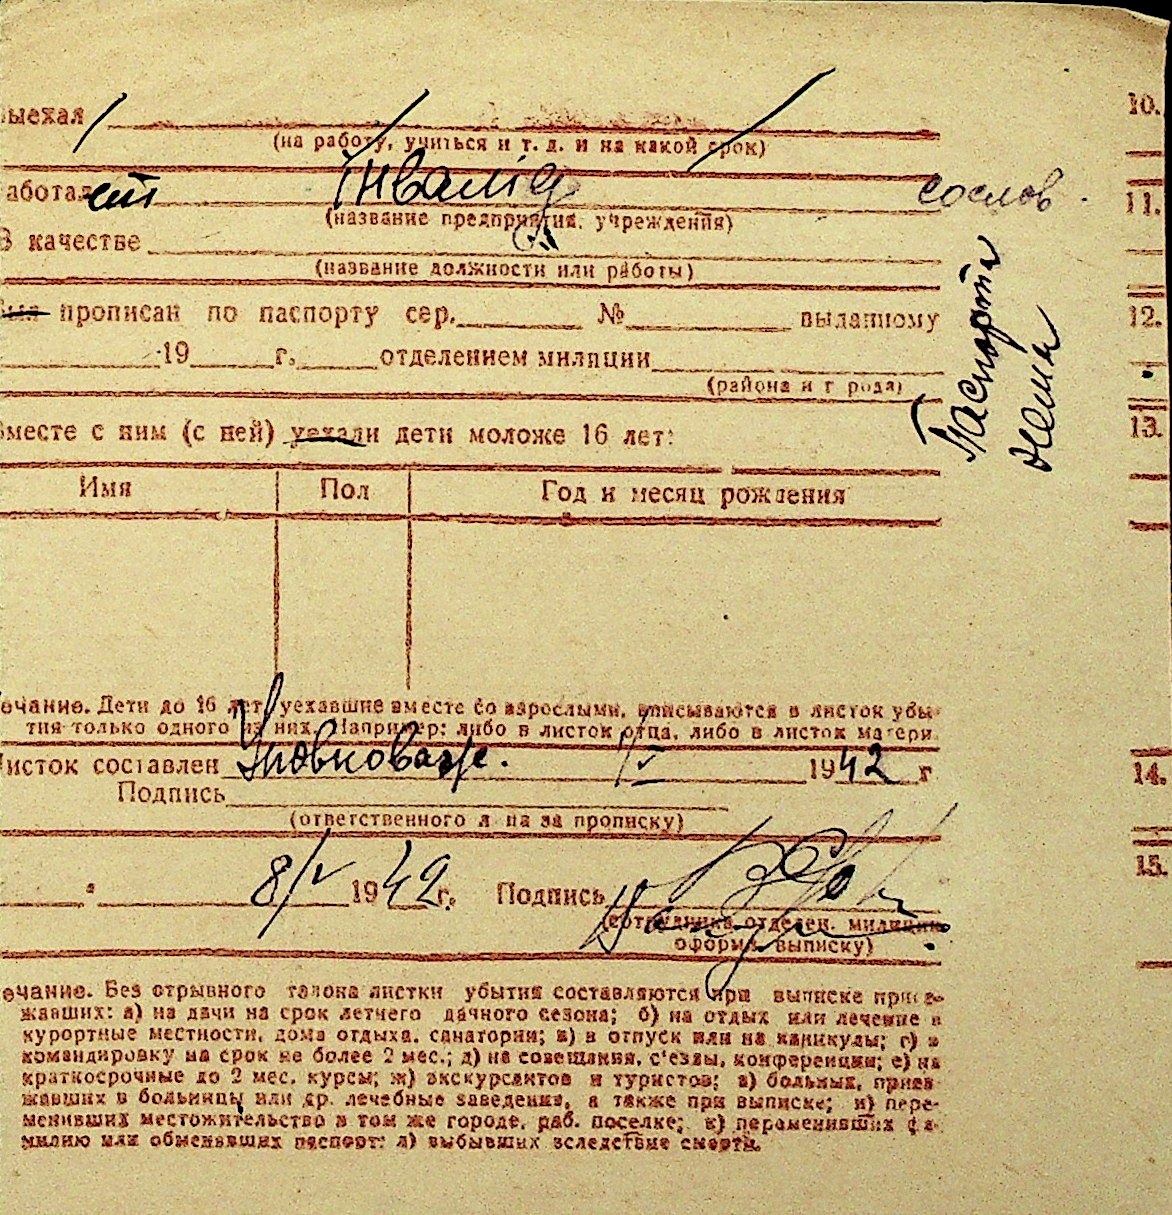 выехал
(на работу, учиться и т. д. и на какой срок)
работал Інвалід сослов.
(название предприятия, учреждения)
В качестве
(название должности или работы)
прописан по паспорту сер. № выданному
19 г. отделением милиции
(района и г рода)
Паспорта
нема
вместе с ним (с ней) уехали дети моложе 16 лет:
Имя Пол Год и месяц рождения
ечание. Дети до 16 лет, уехавшие вместе со взрослыми, вписываются в листок убы-
тия только одного из них. Например: либо в листок отца, либо в листок матери.
Листок составлен 1/V 1942 г
Подпись
(ответственного л ца за прописку)
8/V 1942 г. Подпись
(сотрудника отделен. милиции
оформ. выписку)
ечание. Без отрывного талона листки убытия составляются при выписке приез-
жавших: а) на дачи на срок летнего дачного сезона; б) на отдых или лечение в
курортные местности, дома отдыха, санатории; в) в отпуск или на каникулы; г) в
командировку на срок не более 2 мес.; д) на совещания, с'езды, конференции; е) на
краткосрочные до 2 мес. курсы; ж) экскурсантов и туристов; з) больных, приез
жавших в больницы или др. лечебные заведения, а также при выписке; и) пере-
менивших местожительство в том же городе, раб. поселке; к) переменивших фа-
милию или обменявших паспорт; л) выбывших вследствие смерти.
10.
11.
12.
13.
14.
15.